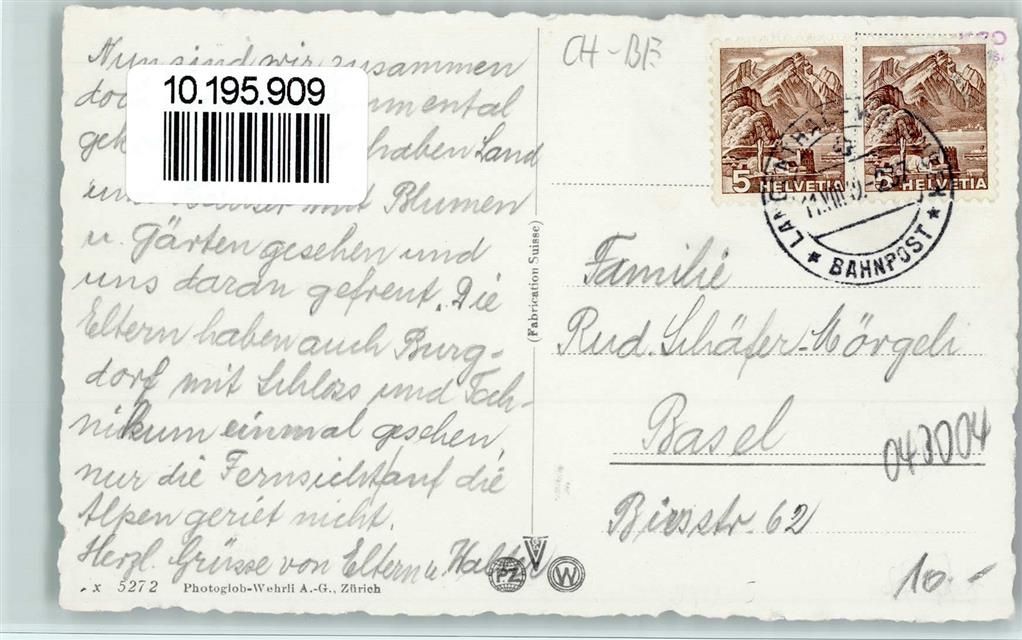 Nun sind wir zusammen
10.195.909
doc mmental
gek haben Land
mit Blumen
u. Gärten gesehen und
uns daran gefreut. Die
Eltern haben auch Burg-
dorf mit Schloss und Tech-
nikum einmal gesehen,
nur die Fernsicht auf die
Alpen geriet nicht.
Herzl. Grüsse von Eltern u.
x 5272 Photoglob-Wehrli A.-G., Zürich
(Fabrication Suisse)
PZ W
CH-BE
5 HELVETIA 5 HELVETIA
* BAHNPOST *
Familie
Rud. Schäfer-Mörgeli
Basel
043004
Birsstr. 62
10.-